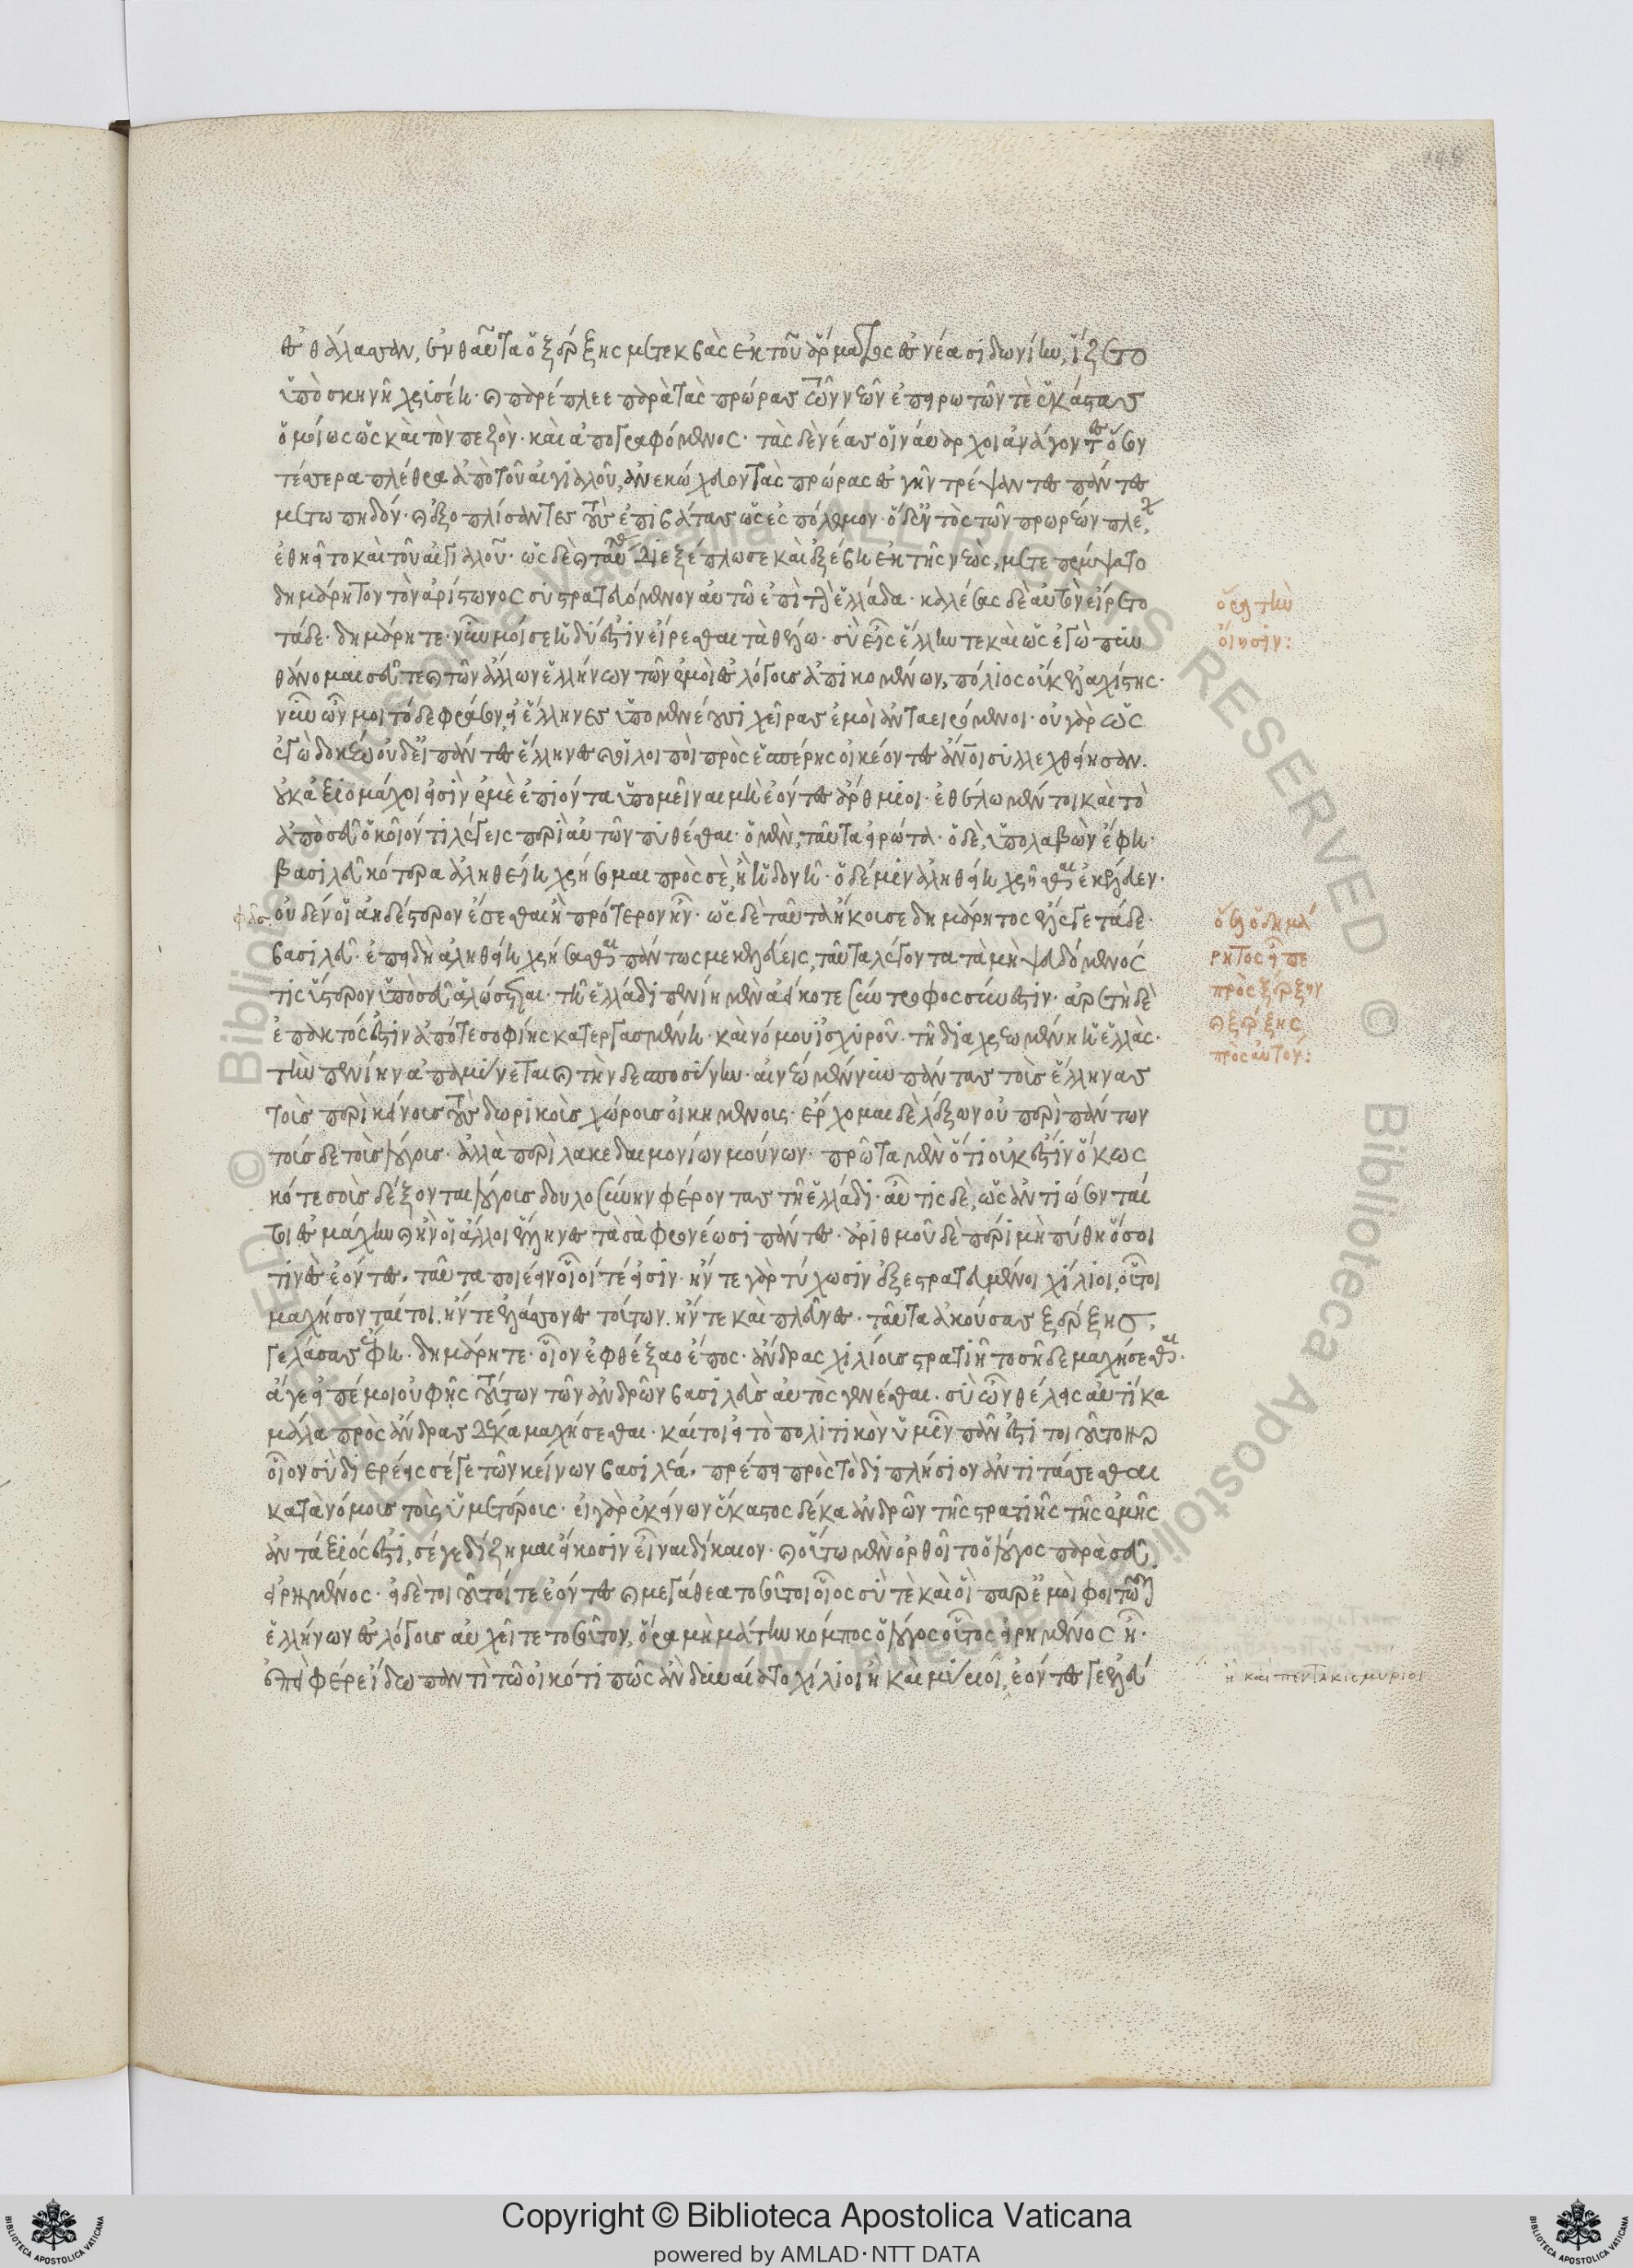 ἐς θάλασσαν, ἐνθαῦτα ὁ ξέρξης μετεκβὰς ἐκ τοῦ ἅρματος ἐς νέα σιδωνίην, ἵζετο
ὑπὸ σκηνῆι χρυσέηι· καὶ παρέπλεε παρὰ τὰς πρώρας τῶν νεῶν ἐπειρωτῶν τὲ ἑκάστας
ὁμοίως ὡς καὶ τὸν πεζὸν· καὶ ἀπογραφόμενος· τὰς δὲ νέας οἱ ναύαρχοι ἀναγαγόντες ὅσον
τέσσερα πλέθρα ἀπὸ τοῦ αἰγιαλοῦ, ἀνεκώχευον τὰς πρώρας ἐς γῆν τρέψαντες πάντες
μετωπηδόν· καὶ ἐξοπλίσαντες τοὺς ἐπιβάτας ὡς ἐς πόλεμον· ὁ δ' ἐντὸς τῶν πρωρέων πλέων
ἐθηεῖτο καὶ τοῦ αἰγιαλοῦ· ὡς δὲ καὶ ταύτας διεξέπλωσε καὶ ἐξέβη ἐκ τῆς νεὼς, μετεπέμψατο
δημάρητον τὸν ἀρίστωνος συστρατευόμενον αὐτῶ ἐπὶ τὴν ἑλλάδα· καλέσας δὲ αὐτὸν εἴρετο
τάδε· δημάρητε· νῦν μοί σε ἡδύ ἐστιν εἴρεσθαι τὰ θέλω· σὺ εἶς ἕλλην τε καὶ ὡς ἐγὼ πυν
θάνομαι σεῦ τε καὶ τῶν ἄλλων ἑλλήνων τῶν ἐμοὶ ἐς λόγους ἀπικομένων, πόλιος οὐκ ἐλαχίστης·
νῦν ὦν μοι τόδε φράσον, εἰ ἕλληνες ὑπομενέουσι χεῖρας ἐμοὶ ἀνταειρόμενοι· οὐ γὰρ ὡς
ἐγὼ δοκέω οὐδ' εἰ πάντες ἕλληνες καὶ οἱ λοιποὶ πρὸς ἑσπέρης οἰκέοντες ἄνθρωποι συλλεχθείησαν.
οὐκ ἀξιόμαχοι εἰσὶν ἐμὲ ἐπιόντα ὑπομεῖναι μὴ ἐόντες ἄρθμιοι· ἐθέλω μέντοι καὶ τὸ
ἀπὸ σεῦ ὁκοῖόν τι λέγεις περὶ αὐτῶν πυθέσθαι· ὁ μὲν, ταῦτα εἰρώτα· ὁ δὲ, ὑπολαβὼν ἔφη·
βασιλεῦ κότερα ἀληθείηι χρήσωμαι πρὸς σὲ, ἢ ἡδονῆι· ὁ δέ μιν ἀληθείηι χρῆσθαι ἐκέλευεν·
φὰς οὐδέν οἱ ἀηδέστερον ἔσεσθαι ἢ πρότερον ἦν· ὡς δὲ ταῦτα ἤκουσε δημάρητος ἔλεγε τάδε·
βασιλεῦ· ἐπειδὴ ἀληθείηι χρήσασθαι πάντως με κελεύεις, ταῦτα λέγοντα τὰ μὴ ψευδόμενός
τις ὕστερον ὑπὸ σεῦ ἁλώσεται· τῆι ἑλλάδι πενίη μὲν αἰεί κοτε σύντροφος σύνεστιν· ἀρετὴ δὲ
ἐπακτός ἐστιν ἀπό τε σοφίης κατεργασμένη· καὶ νόμου ἰσχυροῦ· τῆ διαχρεωμένη ἡ ἑλλὰς·
τὴν πενίην ἀπαμύνεται καὶ τὴν δεσποσύνην· αἰνέω μέν νυν πάντας τοὺς ἕλληνας
τοὺς περὶ κείνους τοὺς δωρικοὺς χώρους οἰκημένους· ἔρχομαι δὲ λέξων οὐ περὶ πάντων
τούσδε τοὺς λόγους· ἀλλὰ περὶ λακεδαιμονίων μούνων· πρῶτα μὲν ὅτι οὐκ ἔστιν ὅκως
κότε σοὺς δέξονται λόγους δουλοσύνην φέροντας τῆ ἑλλάδι· αὖτις δὲ, ὡς ἀντιώσονταί
τοι ἐς μάχην καὶ ἢν οἱ ἄλλοι ἕλληνες τὰ σὰ φρονέωσι πάντες· ἀριθμοῦ δὲ πέρι μὴ πύθηι ὅσοι
τινὲς ἐόντες. ταῦτα ποιέειν οἷοί τέ εἰσιν· ἤν τε γὰρ τύχωσιν ἐξεστρατευμένοι χίλιοι, οὗτοι
μαχήσονταί τοι. ἤν τε ἐλάσσονες τούτων. ἤν τε καὶ πλεῦνες· ταῦτα ἀκούσας ξέρξης,
γελάσας ἔφη· δημάρητε· οἷον ἐφθέξαο ἔπος· ἄνδρας χιλίους στρατιῆ τοσῆδε μαχήσεσθαι·
ἄγε εἰπέ μοι οὐ φῇς τούτων τῶν ἀνδρῶν βασιλεὺς αὐτὸς γενέσθαι. σὺ ὦν θέλεις αὐτίκα
μάλα πρὸς ἄνδρας δέκα μαχήσεσθαι· καίτοι εἰ τὸ πολιτικὸν ὑμῖν πᾶν ἐστί τοιοῦτον
οἷον σὺ διερέεις σέ γε τῶν κείνων βασιλέα. πρέπει πρὸς τὸ διπλήσιον ἀντιτάσσεσθαι
κατὰ νόμους τοὺς ὑμετέρους· εἰ γὰρ ἐκείνων ἕκαστος δέκα ἀνδρῶν τῆς στρατιῆς τῆς ἐμῆς
ἀντάξιός ἐστι, σέ γε δίζημαι εἴκοσιν εἶναι δίκαιον· καὶ οὕτω μὲν ὀρθοῖτο ὁ λόγος παρὰ σεῦ
εἰρημένος· εἰ δὲ τοιοῦτοί τε ἐόντες καὶ μεγάθεα τοσοῦτοι οἷος σύ τὲ καὶ οἳ παρ' ἐμὲ φοιτῶσι
ἑλλήνων ἐς λόγους αὐχεῖτε τοσοῦτον, ὅρα μὴ μάτην κόμπος ὁ λόγος οὗτος εἰρημένος ἦ·
ἐπεὶ φέρε ἴδω παντὶ τῶ οἰκότι πῶς ἂν δυναίατο χίλιοι ἢ καὶ μύριοί, ἐόντες γε ἐλεύ
ὅρα τὴν
οἴησιν:
ὅσα ὁ δημά
ρητος εἶπε
πρὸς ξέρξην
καὶ ξέρξης
πρὸς αὐτόν:
ἢ καὶ πεντακισμυριοι
Copyright © Biblioteca Apostolica Vaticana
powered by AMLAD·NTT DATA